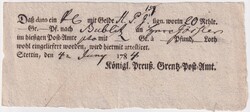 Daß dato ein mit Geld H. P. J. sign. worin 20 Rthlr.
Gr. Pf. nach Bublitz an
im hiesigen Post-Amte mit Gr. Pfund, Loth
wohl eingeliefert worden, wird hiermit attestiret.
Stettin, den 4 Juny 1784
Königl. Preuß. Grentz-Post-Amt.